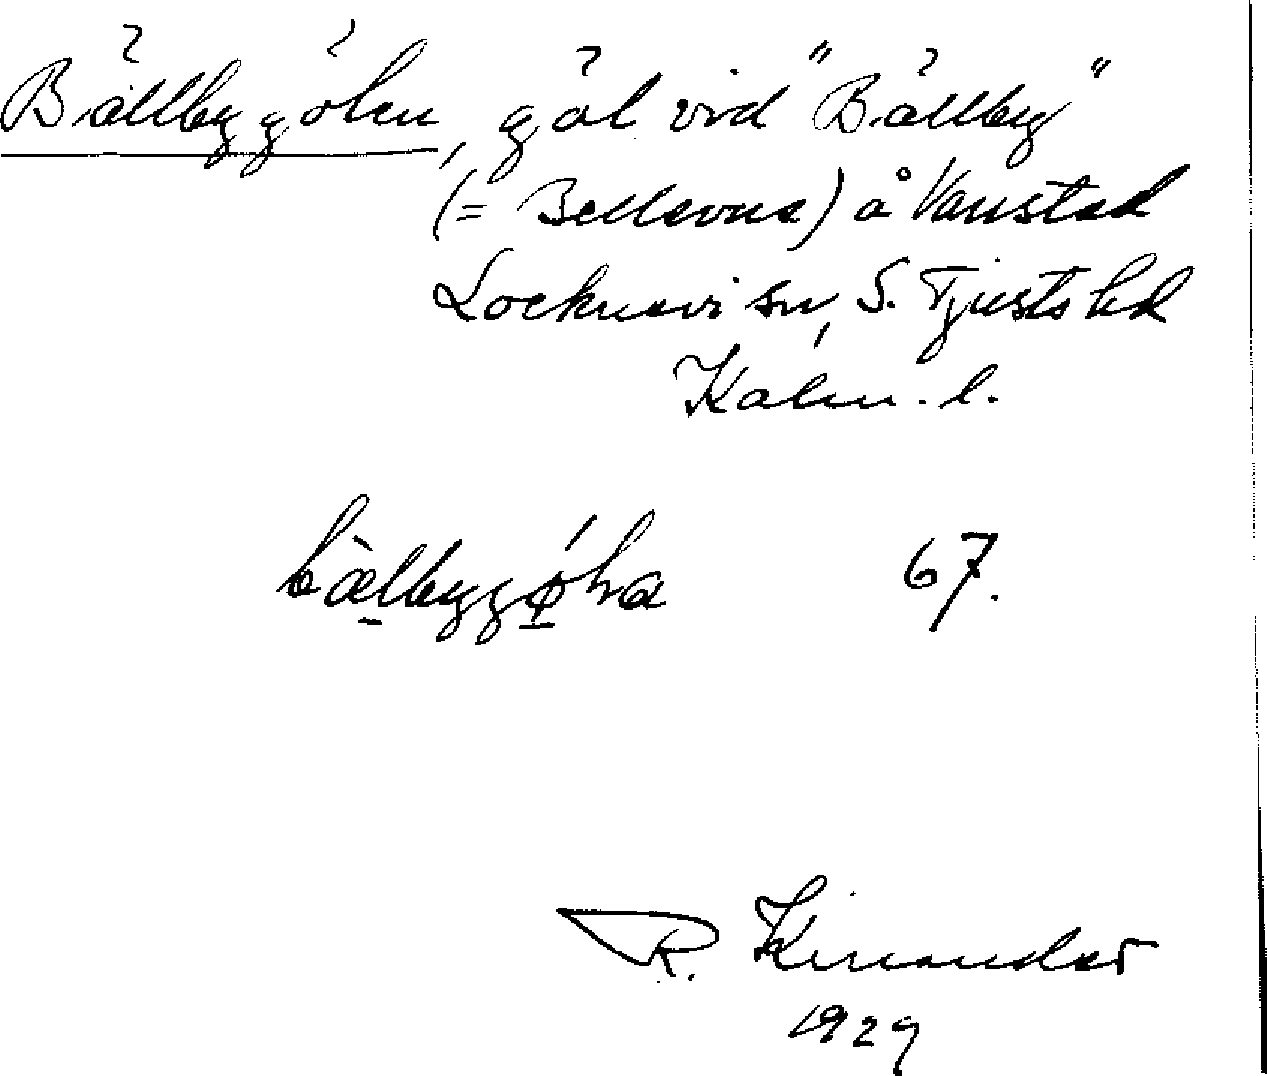 Bällbygölen, göl vid "Bällby"
(= Bellevue) å Vanstad
Locknevi sn, S. Tjusts hd
Kalm. l.
bælbygøln 67.
R. Kinander
1929